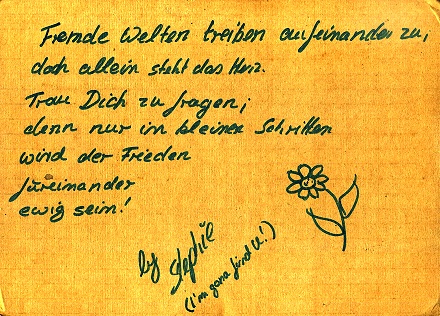 Fremde Welten treiben aufeinander zu,
doch allein steht das Herz.
Trau Dich zu fragen;
denn nur in kleinen Schritten
wird der Frieden
füreinander
ewig sein!
by Stephie
(I'm gona find U!)